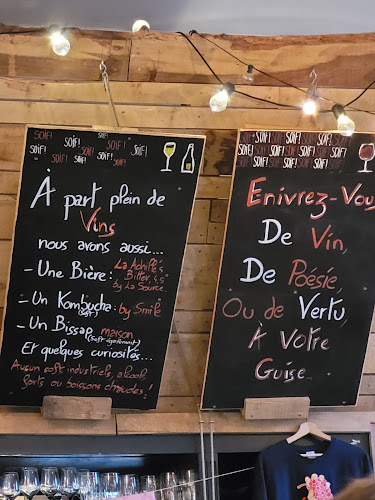 SOIF! SOIF! SOIF!
SOIF! SOIF! SOIF! SOIF!
SOIF! SOIF! SOIF!
À part plein de
Vins
nous avons aussi...
- Une Bière:
by La Source
- Un Kombucha: by Smile
(soft)
- Un Bissap maison
(soft également)
Et quelques curiosités...
Aucun soft industriels, alcool
forts ou boissons chaudes!
SOIF! SOIF! SOIF! SOIF!
SOIF! SOIF! SOIF! SOIF!
SOIF! SOIF! SOIF! SOIF!
Enivrez-Vous
De Vin,
De Poésie,
Ou de Vertu,
À Votre
Guise...